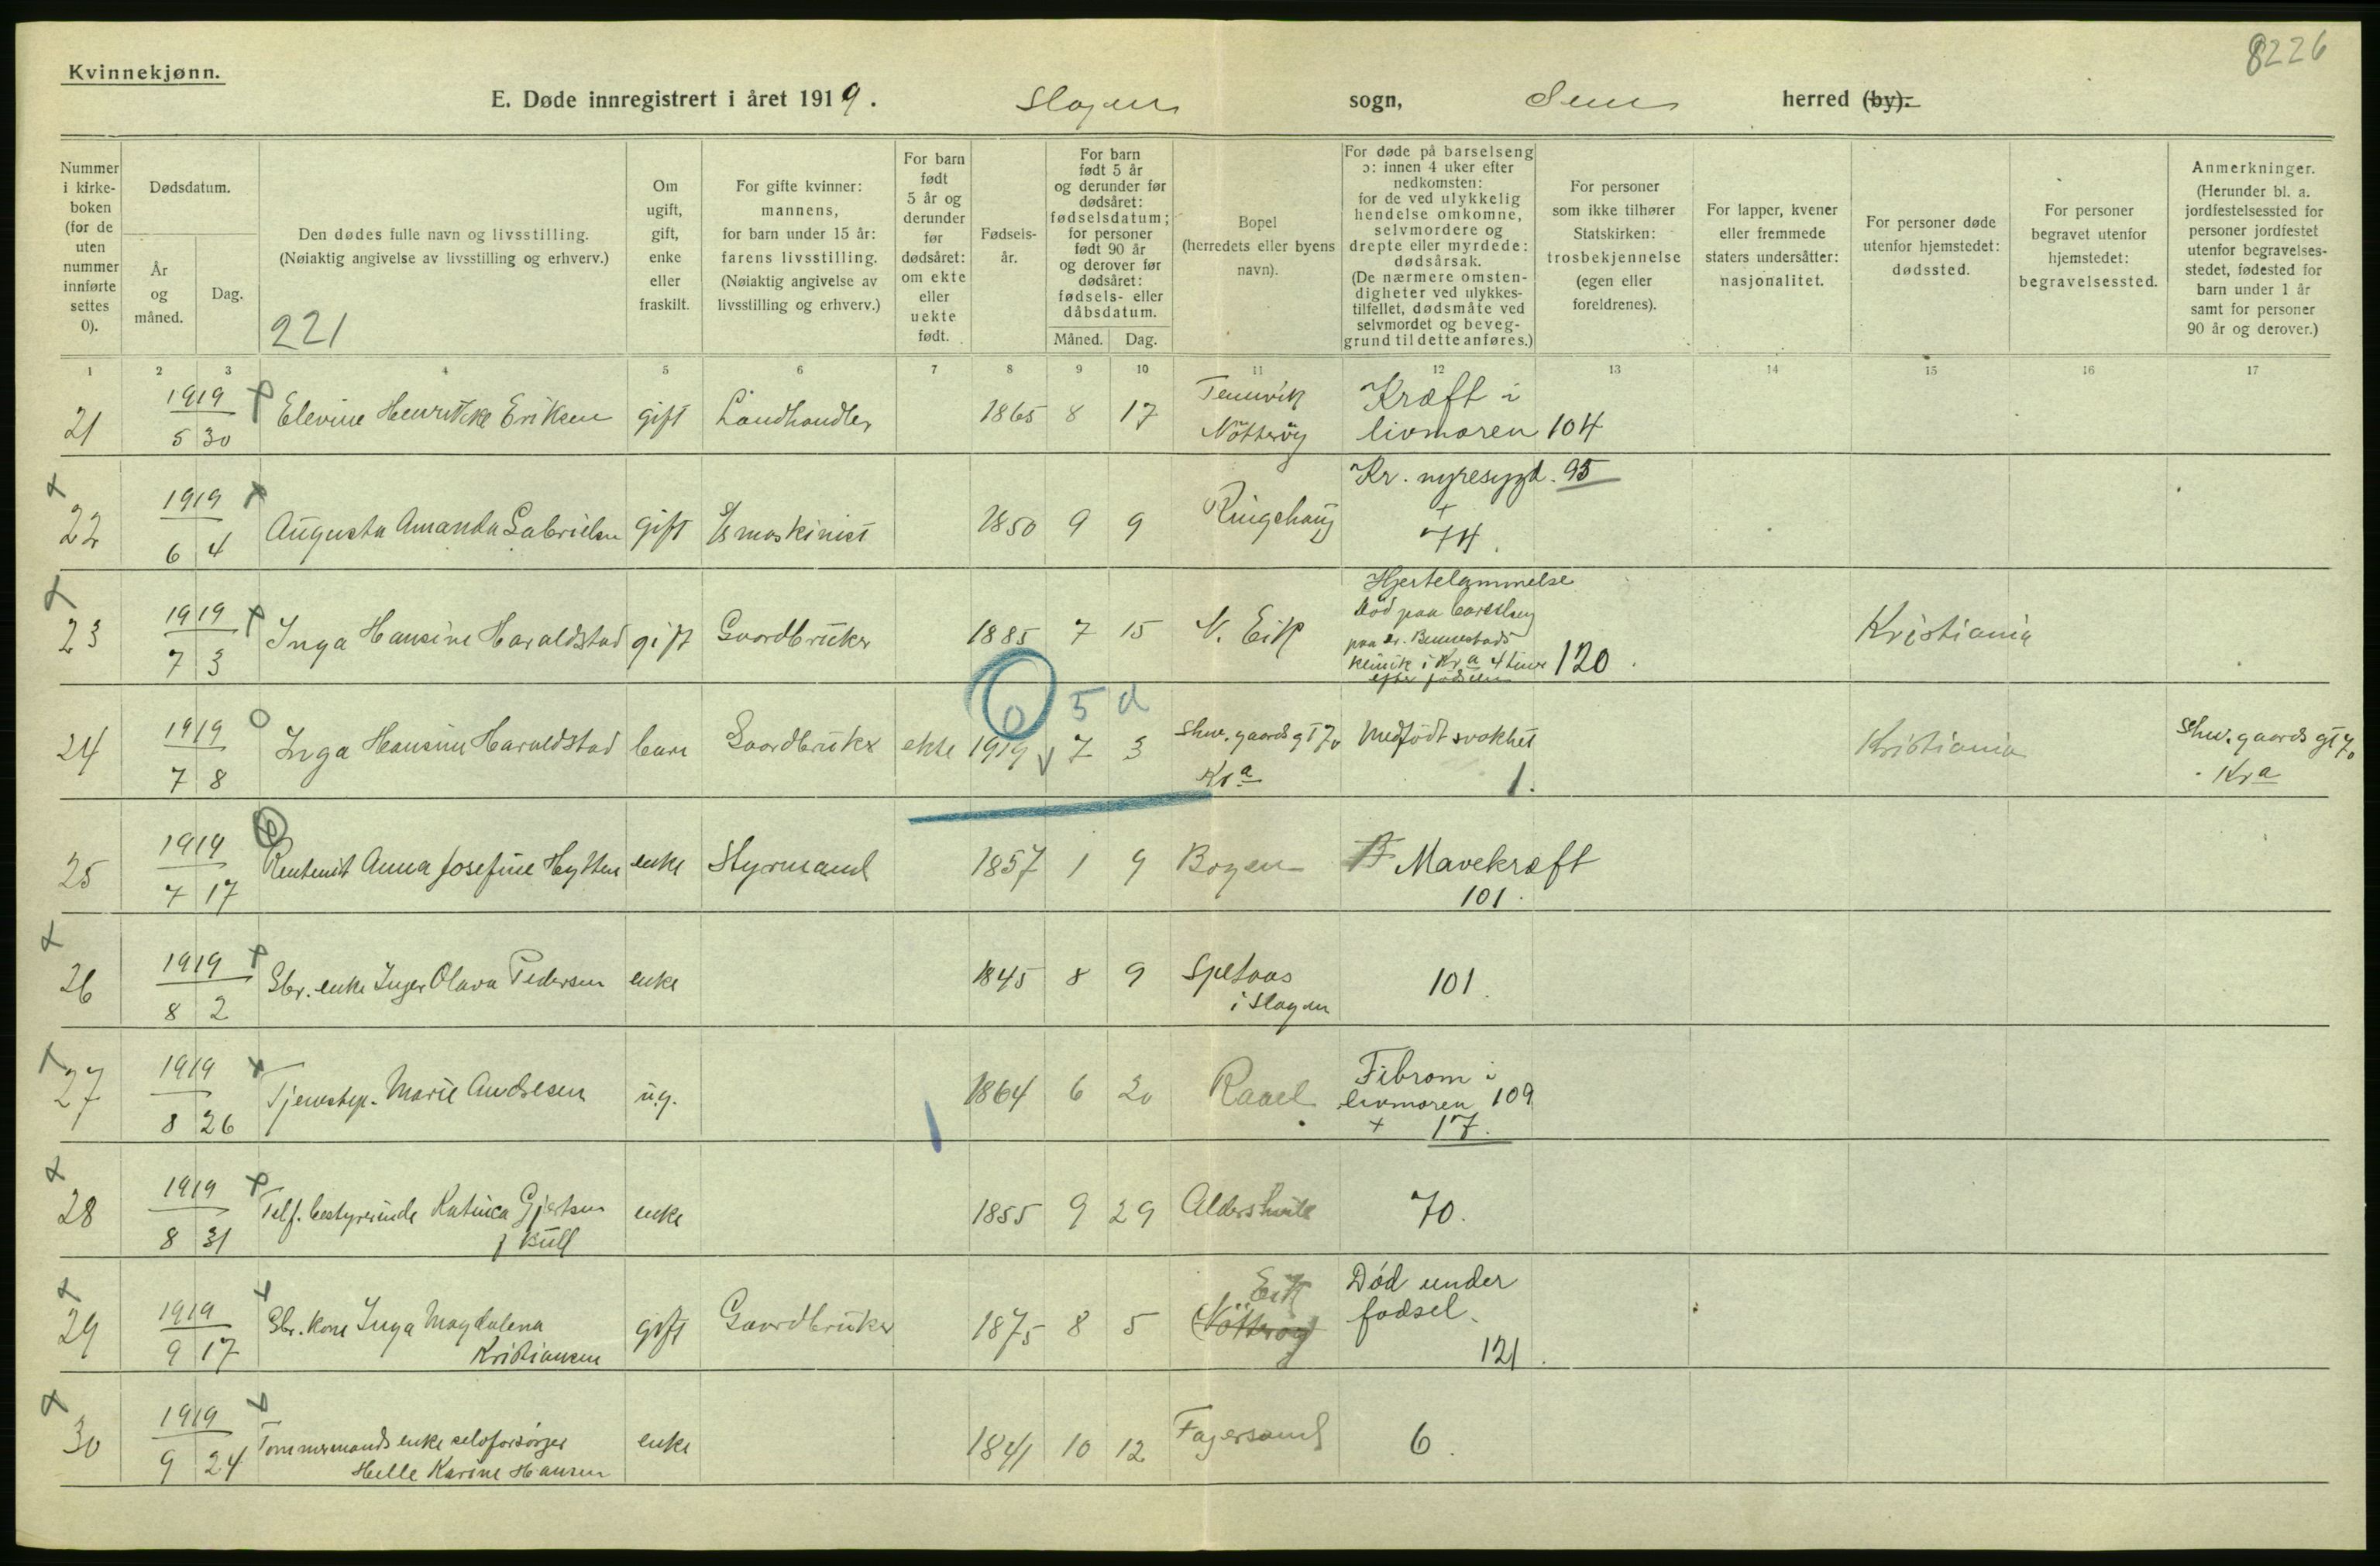 8226
Kvinnekjønn.
E. Døde innregistrert i året 1919. Slagen sogn, Sem herred (by).
Nummer i kirke- boken (for de uten nummer innførte settes 0).
Dødsdatum.
År og måned.
Dag.
Den dødes fulle navn og livsstilling.
(Nøiaktig angivelse av livsstilling og erhverv.)
221
Om ugift, gift, enke eller fraskilt.
For gifte kvinner: mannens, for barn under 15 år: farens livsstilling. (Nøiaktig angivelse av livsstilling og erhverv.)
For barn født 5 år og derunder før dødsåret: om ekte eller uekte født.
Fødsels- år.
For barn født 5 år og derunder før dødsåret: fødselsdatum; for personer født 90 år og derover før dødsåret: fødsels- eller dåbsdatum.
Måned. Dag.
Bopel (herredets eller byens navn).
For døde på barselseng ɔ: innen 4 uker efter nedkomsten: for de ved ulykkelig hendelse omkomne, selvmordere og drepte eller myrdede: dødsårsak. (De nærmere omsten- digheter ved ulykkes- tilfellet, dødsmåte ved selvmordet og beveg- grund til dette anføres.)
For personer som ikke tilhører Statskirken: trosbekjennelse (egen eller foreldrenes).
For lapper, kvener eller fremmede staters undersåtter: nasjonalitet.
For personer døde utenfor hjemstedet: dødssted.
For personer begravet utenfor hjemstedet: begravelsessted.
Anmerkninger. (Herunder bl. a. jordfestelsessted for personer jordfestet utenfor begravelses- stedet, fødested for barn under 1 år samt for personer 90 år og derover.)
1 2 3 4 5 6 7 8 9 10 11 12 13 14 15 16 17
21 1919 5 30 Elevine Henrikke Eriksen gift Landhandler 1865 8 17 Tenvik Nøtterøy Kræft i livmoren 104
22 1919 6 4 Augusta Amanda Gabrielsen gift maskinist 1850 9 9 Ringshaug Kr. nyresygd. 95 + 74.
23 1919 7 3 Inga Hansine Haraldstad gift Gaardbruker 1885 7 15 N. Eik Hjertelammelse død paa barselseng paa dr. klinik i Kra 4 timer efter fødselen 120. Kristiania
0 5 d
24 1919 7 8 Inga Hansine Haraldstad barn Gaardbruker ekte 1919 7 3 gaards gt 70 Kra Medfødt svakhet 1. Kristiania gaards gt 70 Kra
25 1919 7 17 Rentenist Anna Josefine Hytten enke Styrmand 1857 1 9 Bogen Mavekræft 101.
26 1919 8 2 Gbr. enke Inger Olava Pedersen enke 1845 8 9 Spetaas i Slagen 101.
27 1919 8 26 Tjenestep. Marie Andresen ug. 1864 6 20 Raael Fibrom i livmoren 109 + 17.
28 1919 8 31 Telf. bestyrerinde Katinca Gjertsen f Bull enke 1855 9 29 Aldershvile 70.
29 1919 9 17 Gbr. kone Inga Magdalena Kristiansen gift Gaardbruker 1875 8 5 Eik (Nøtterøy) Død under fødsel. 121.
30 1919 9 24 Tømmermands enke selvforsørger Helle Karine Hansen enke 1841 10 12 Fagersand 6.